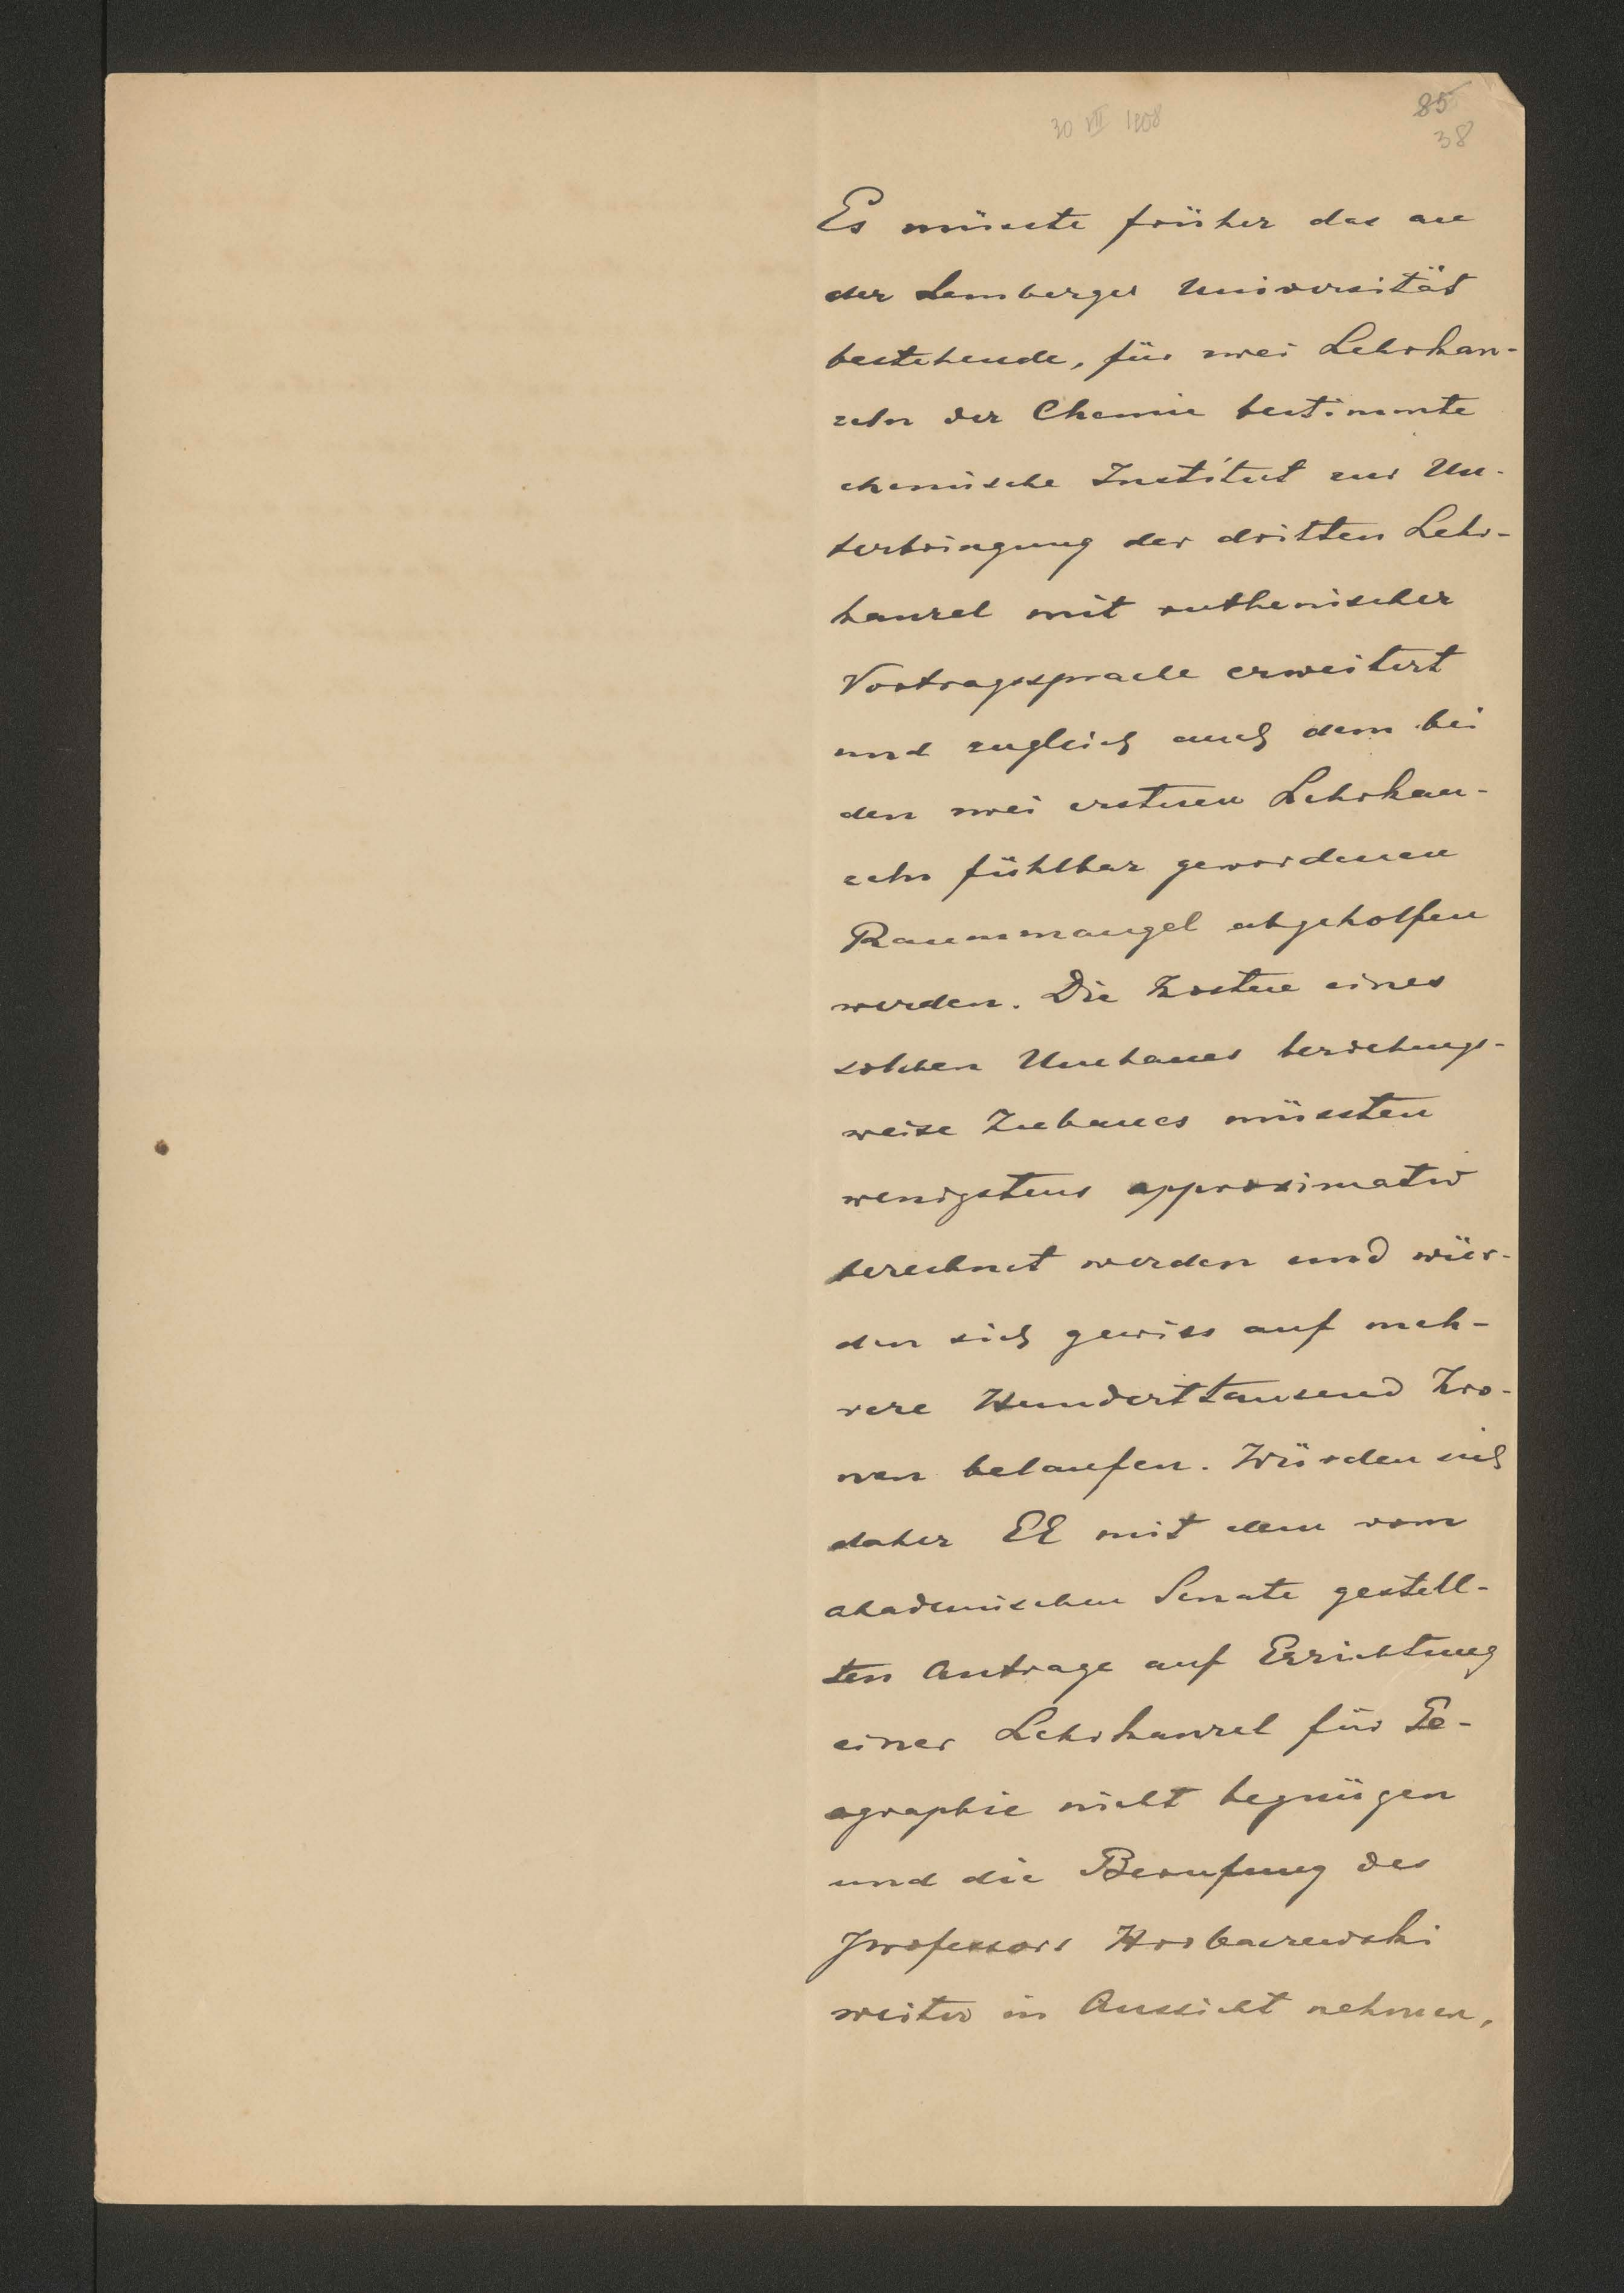 30 VII 1908
85
38
Es müsste früher das an
der Lemberger Universität
bestehende, für zwei Lehrkan-
zeln der Chemie bestimmte
chemische Institut zur Un-
terbringung der dritten Lehr-
kanzel mit ruthenischer
Vortragssprache erweitert
und zugleich auch dem bei
den zwei ersteren Lehrkan-
zeln fühlbar gewordenen
Raummangel abgeholfen
werden. Die Kosten eines
solchen Umbaues beziehungs-
weise Zubaues müssten
wenigstens approximativ
berechnet werden und wür-
den sich gewiss auf meh-
rere Hunderttausend Kro-
nen belaufen. Würden sich
daher EE mit dem vom
akademischen Senate gestell-
ten Antrage auf Errichtung
einer Lehrkanzel für Ge-
ographie nicht begnügen
und die Berufung des
Professors Horbaczewski
weiter in Aussicht nehmen,